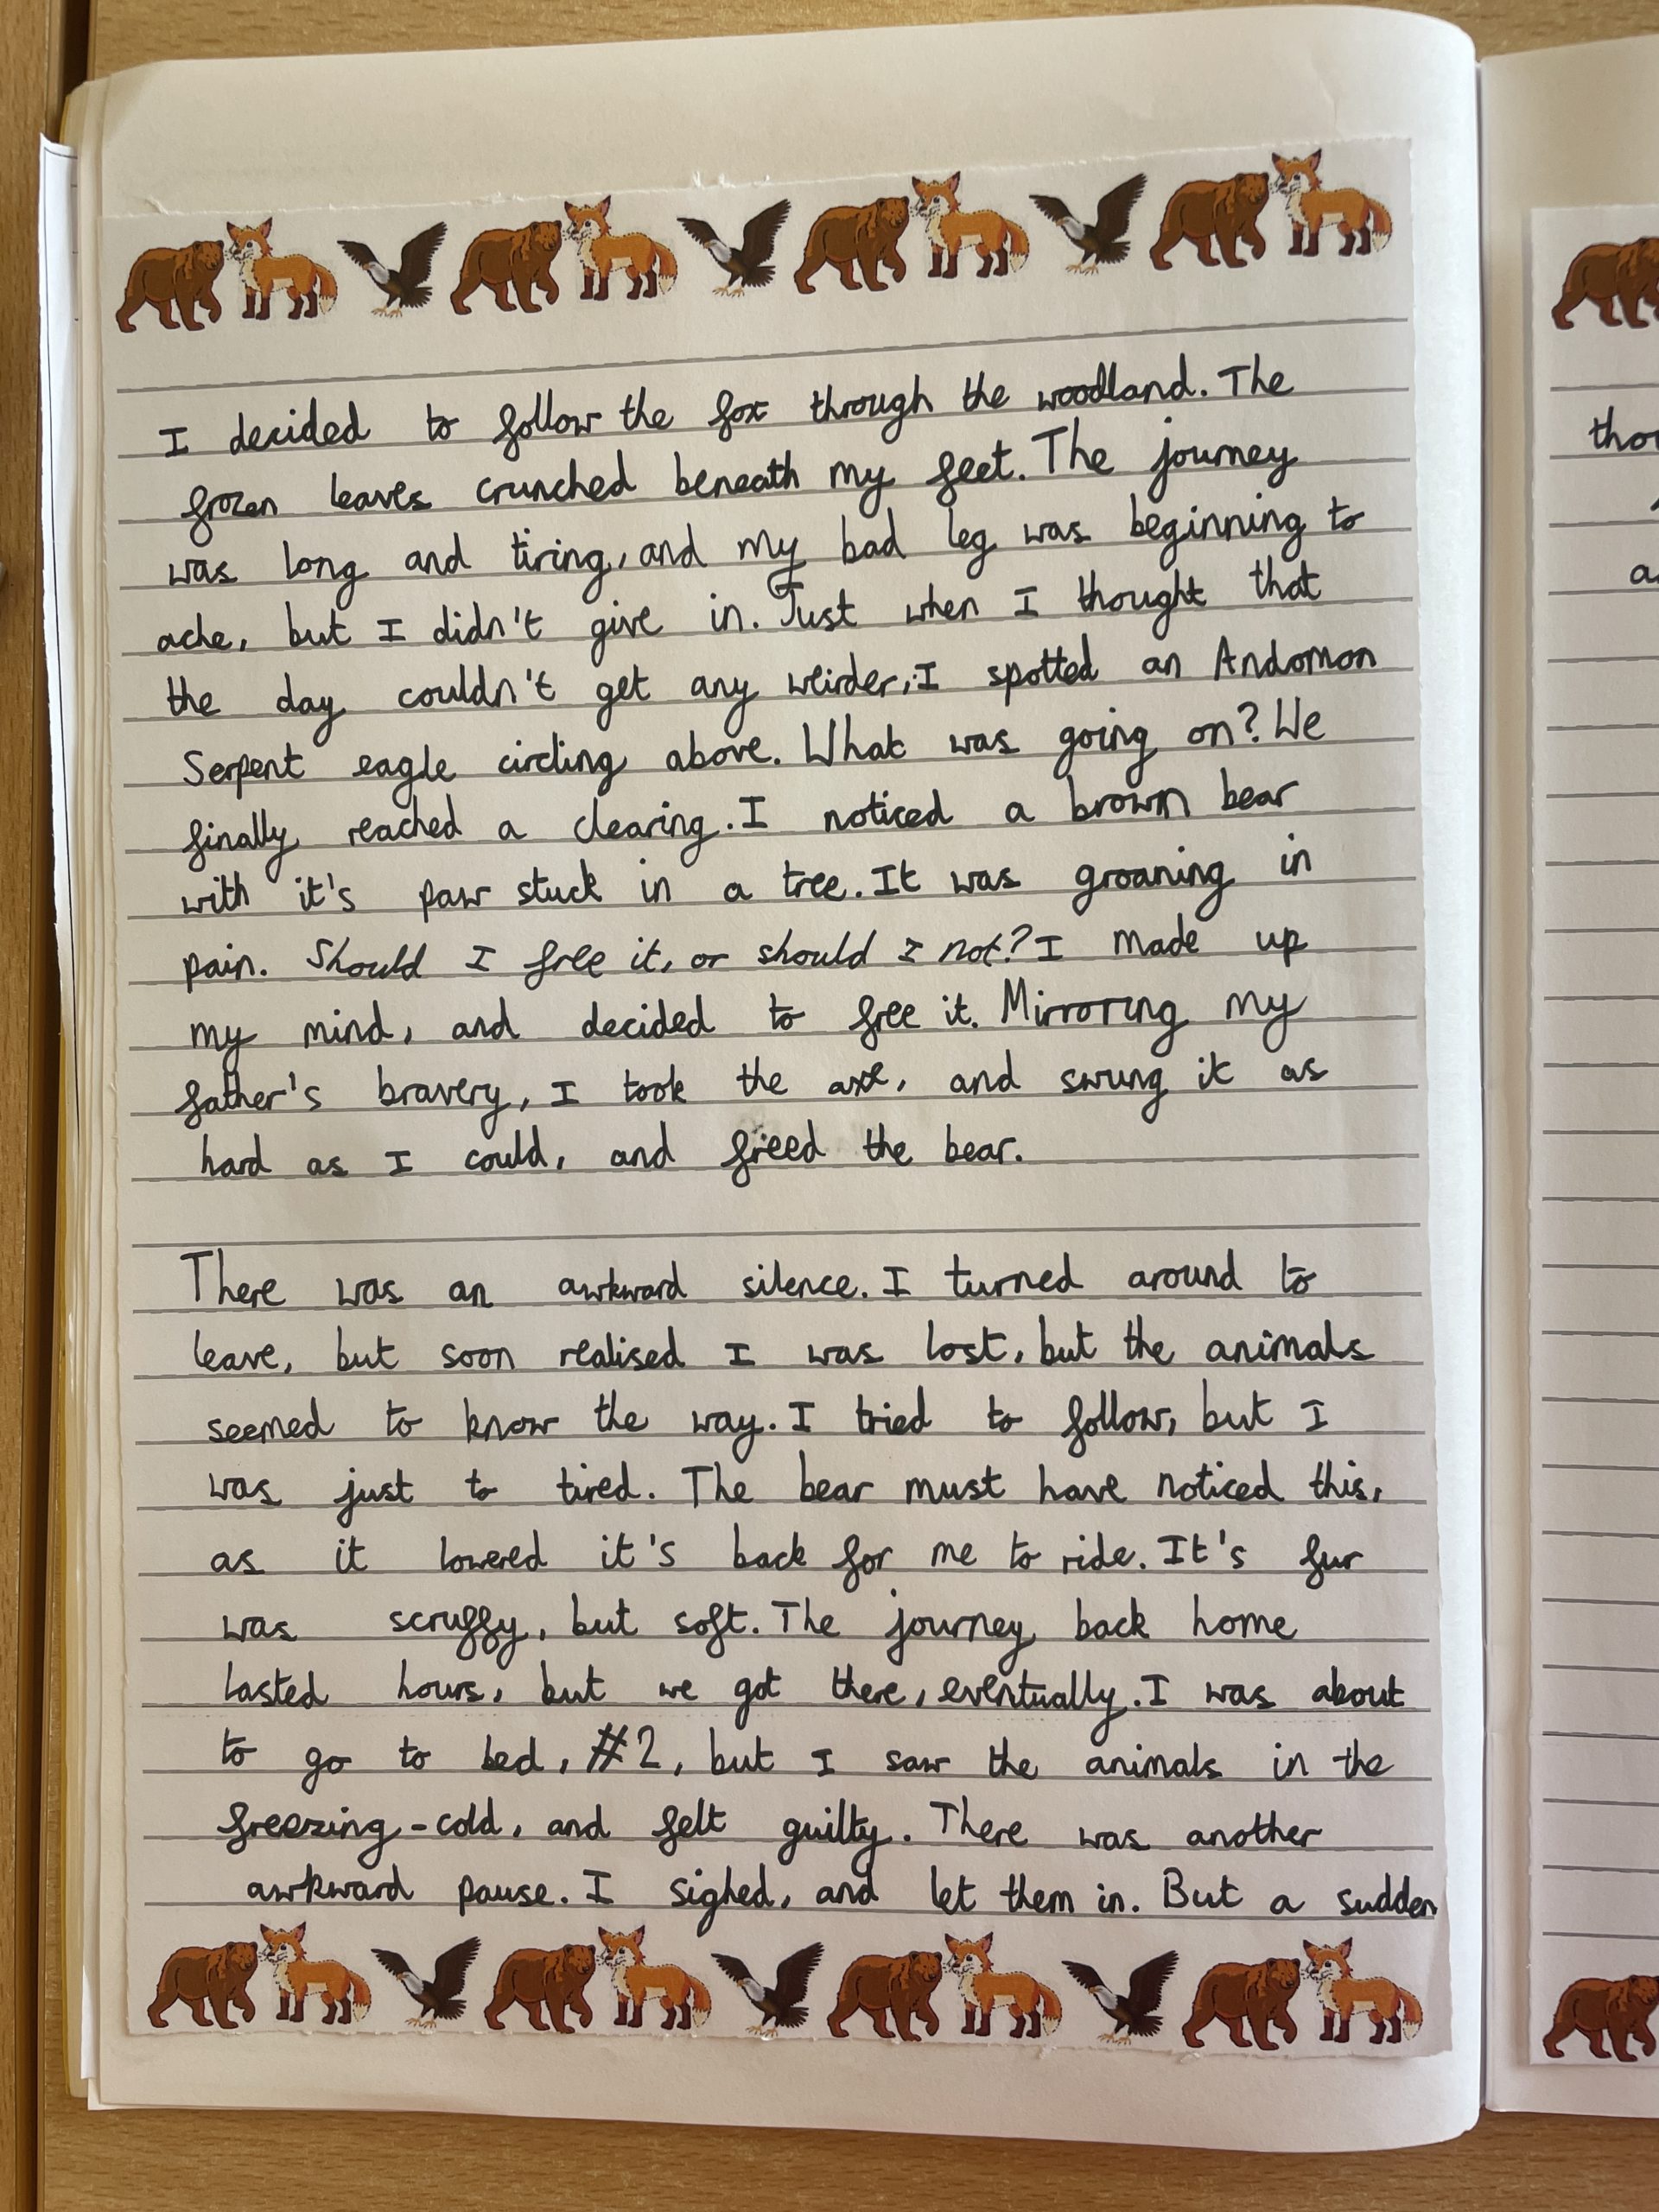 I decided to follow the fox through the woodland. The
frozen leaves crunched beneath my feet. The journey
was long and tiring, and my bad leg was beginning to
ache, but I didn't give in. Just when I thought that
the day couldn't get any weirder, I spotted an Andoman
Serpent eagle circling above. What was going on? We
finally reached a clearing. I noticed a brown bear
with it's paw stuck in a tree. It was groaning in
pain. Should I free it, or should I not? I made up
my mind, and decided to free it. Mirroring my
father's bravery, I took the axe, and swung it as
hard as I could, and freed the bear.
There was an awkward silence. I turned around to
leave, but soon realised I was lost, but the animals
seemed to know the way. I tried to follow, but I
was just to tired. The bear must have noticed this,
as it lowered it's back for me to ride. It's fur
was scruffy, but soft. The journey back home
lasted hours, but we got there, eventually. I was about
to go to bed, #2, but I saw the animals in the
freezing-cold, and felt guilty. There was another
awkward pause. I sighed, and let them in. But a sudden